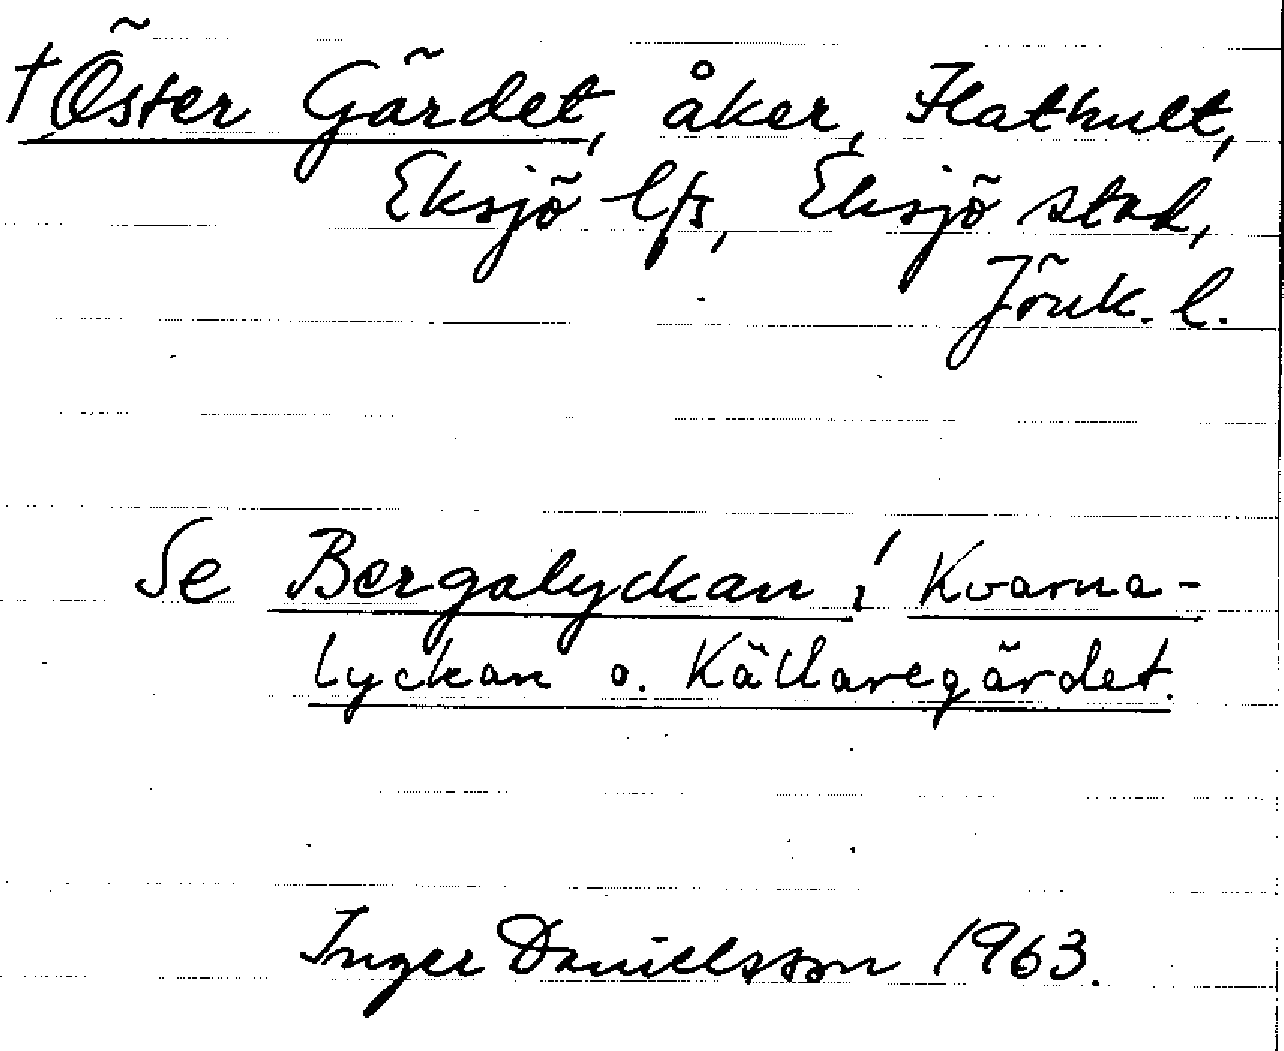 †Öster Gärdet, åker, Flathult,
Eksjö lfs, Eksjö stad,
Jönk. l.
Se Bergalyckan, Kvarna-
lyckan o. Källaregärdet.
Inger Danielsson 1963.